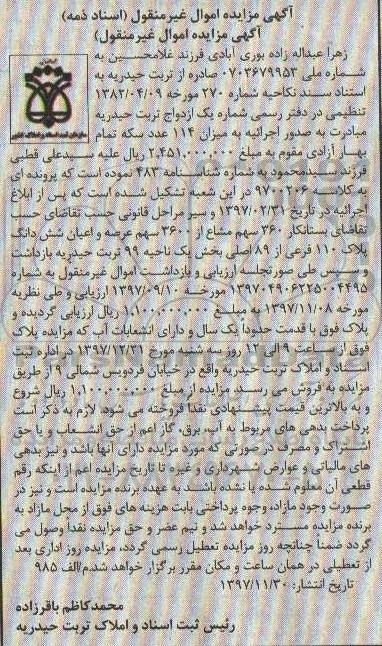 آگهی مزایده اموال غیرمنقول (اسناد ذمه)
آگهی مزایده اموال غیرمنقول)
زهرا عبداله زاده بوری آبادی فرزند غلامحسین به
شماره ملی ۰۷۰۳۶۷۹۹۵۳ صادره از تربت حیدریه به
استناد سند نکاحیه شماره ۲۷۰ مورخه ۱۳۸۲/۰۴/۰۹
تنظیمی در دفتر رسمی شماره یک ازدواج تربت حیدریه
مبادرت به صدور اجرائیه به میزان ۱۱۴ عدد سکه تمام
بهار آزادی مقوم به مبلغ ۲,۴۵۱,۰۰۰,۰۰۰ ریال علیه سیدعلی قطبی
فرزند سیدمحمود به شماره شناسنامه ۴۸۳ نموده است که پرونده ای
به کلاسه ۹۷۰۰۲۰۶ در این شعبه تشکیل شده است که پس از ابلاغ
اجرائیه در تاریخ ۱۳۹۷/۰۲/۳۱ و سیر مراحل قانونی حسب تقاضای حسب
تقاضای بستانکار ۳۶۰ سهم مشاع از ۳۶۰۰ سهم عرصه و اعیان شش دانگ
پلاک ۱۱۰ فرعی از ۸۹ اصلی بخش یک ناحیه ۹۹ تربت حیدریه بازداشت
و سپس طی صورتجلسه ارزیابی و بازداشت اموال غیرمنقول به شماره
۱۳۹۷۰۴۹۰۶۲۲۵۰۰۴۴۹۵ مورخه ۱۳۹۷/۰۹/۱۰ ارزیابی و طی نظریه
مورخه ۱۳۹۷/۱۱/۰۸ به مبلغ ۱,۱۰۰,۰۰۰,۰۰۰ ریال ارزیابی گردیده و
پلاک فوق با قدمت حدوداً یک سال و دارای انشعابات آب که مزایده پلاک
فوق از ساعت ۹ الی ۱۲ روز سه شنبه مورخ ۱۳۹۷/۱۲/۲۱ در اداره ثبت
اسناد و املاک تربت حیدریه واقع در خیابان فردوسی شمالی ۹ از طریق
مزایده به فروش می رسد. مزایده از مبلغ ۱,۱۰۰,۰۰۰,۰۰۰ ریال شروع
و به بالاترین قیمت پیشنهادی نقداً فروخته می شود. لازم به ذکر است
پرداخت بدهی های مربوط به آب، برق، گاز اعم از حق انشعاب و یا حق
اشتراک و مصرف در صورتی که مورد مزایده دارای آنها باشد و نیز بدهی
های مالیاتی و عوارض شهرداری و غیره تا تاریخ مزایده اعم از اینکه رقم
قطعی آن معلوم شده یا نشده باشد به عهده برنده مزایده است و نیز در
صورت وجود مازاد، وجوه پرداختی بابت هزینه های فوق از محل مازاد به
برنده مزایده مسترد خواهد شد و نیم عشر و حق مزایده نقداً وصول می
گردد ضمناً چنانچه روز مزایده تعطیل رسمی گردد، مزایده روز اداری بعد
از تعطیلی در همان ساعت و مکان مقرر برگزار خواهد شد.م/الف ۹۸۵
تاریخ انتشار: ۱۳۹۷/۱۱/۳۰
محمدکاظم باقرزاده
رئیس ثبت اسناد و املاک تربت حیدریه